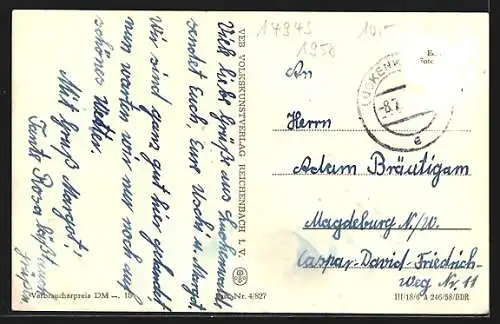 Viele liebe Grüße aus Luckenwalde
sendet Euch, Eure Uschi u. Margot.
Wir sind ganz gut hier gelandet
nun warten wir nur noch auf
schönes Wetter.
Mit Gruß Margot!
Tante Rosa läßt auch
grüßen
Verbraucherpreis DM –.
VEB VOLKSKUNSTVERLAG REICHENBACH I. V.
Nr. 4/827
14943
10.-
1958
LUCKENW
-8.7.
e
An
Herrn
Adam Bräutigam
Magdeburg N/W.
Caspar-David-Friedrich-
Weg Nr. 11
III/18/6 A 246/58/DDR